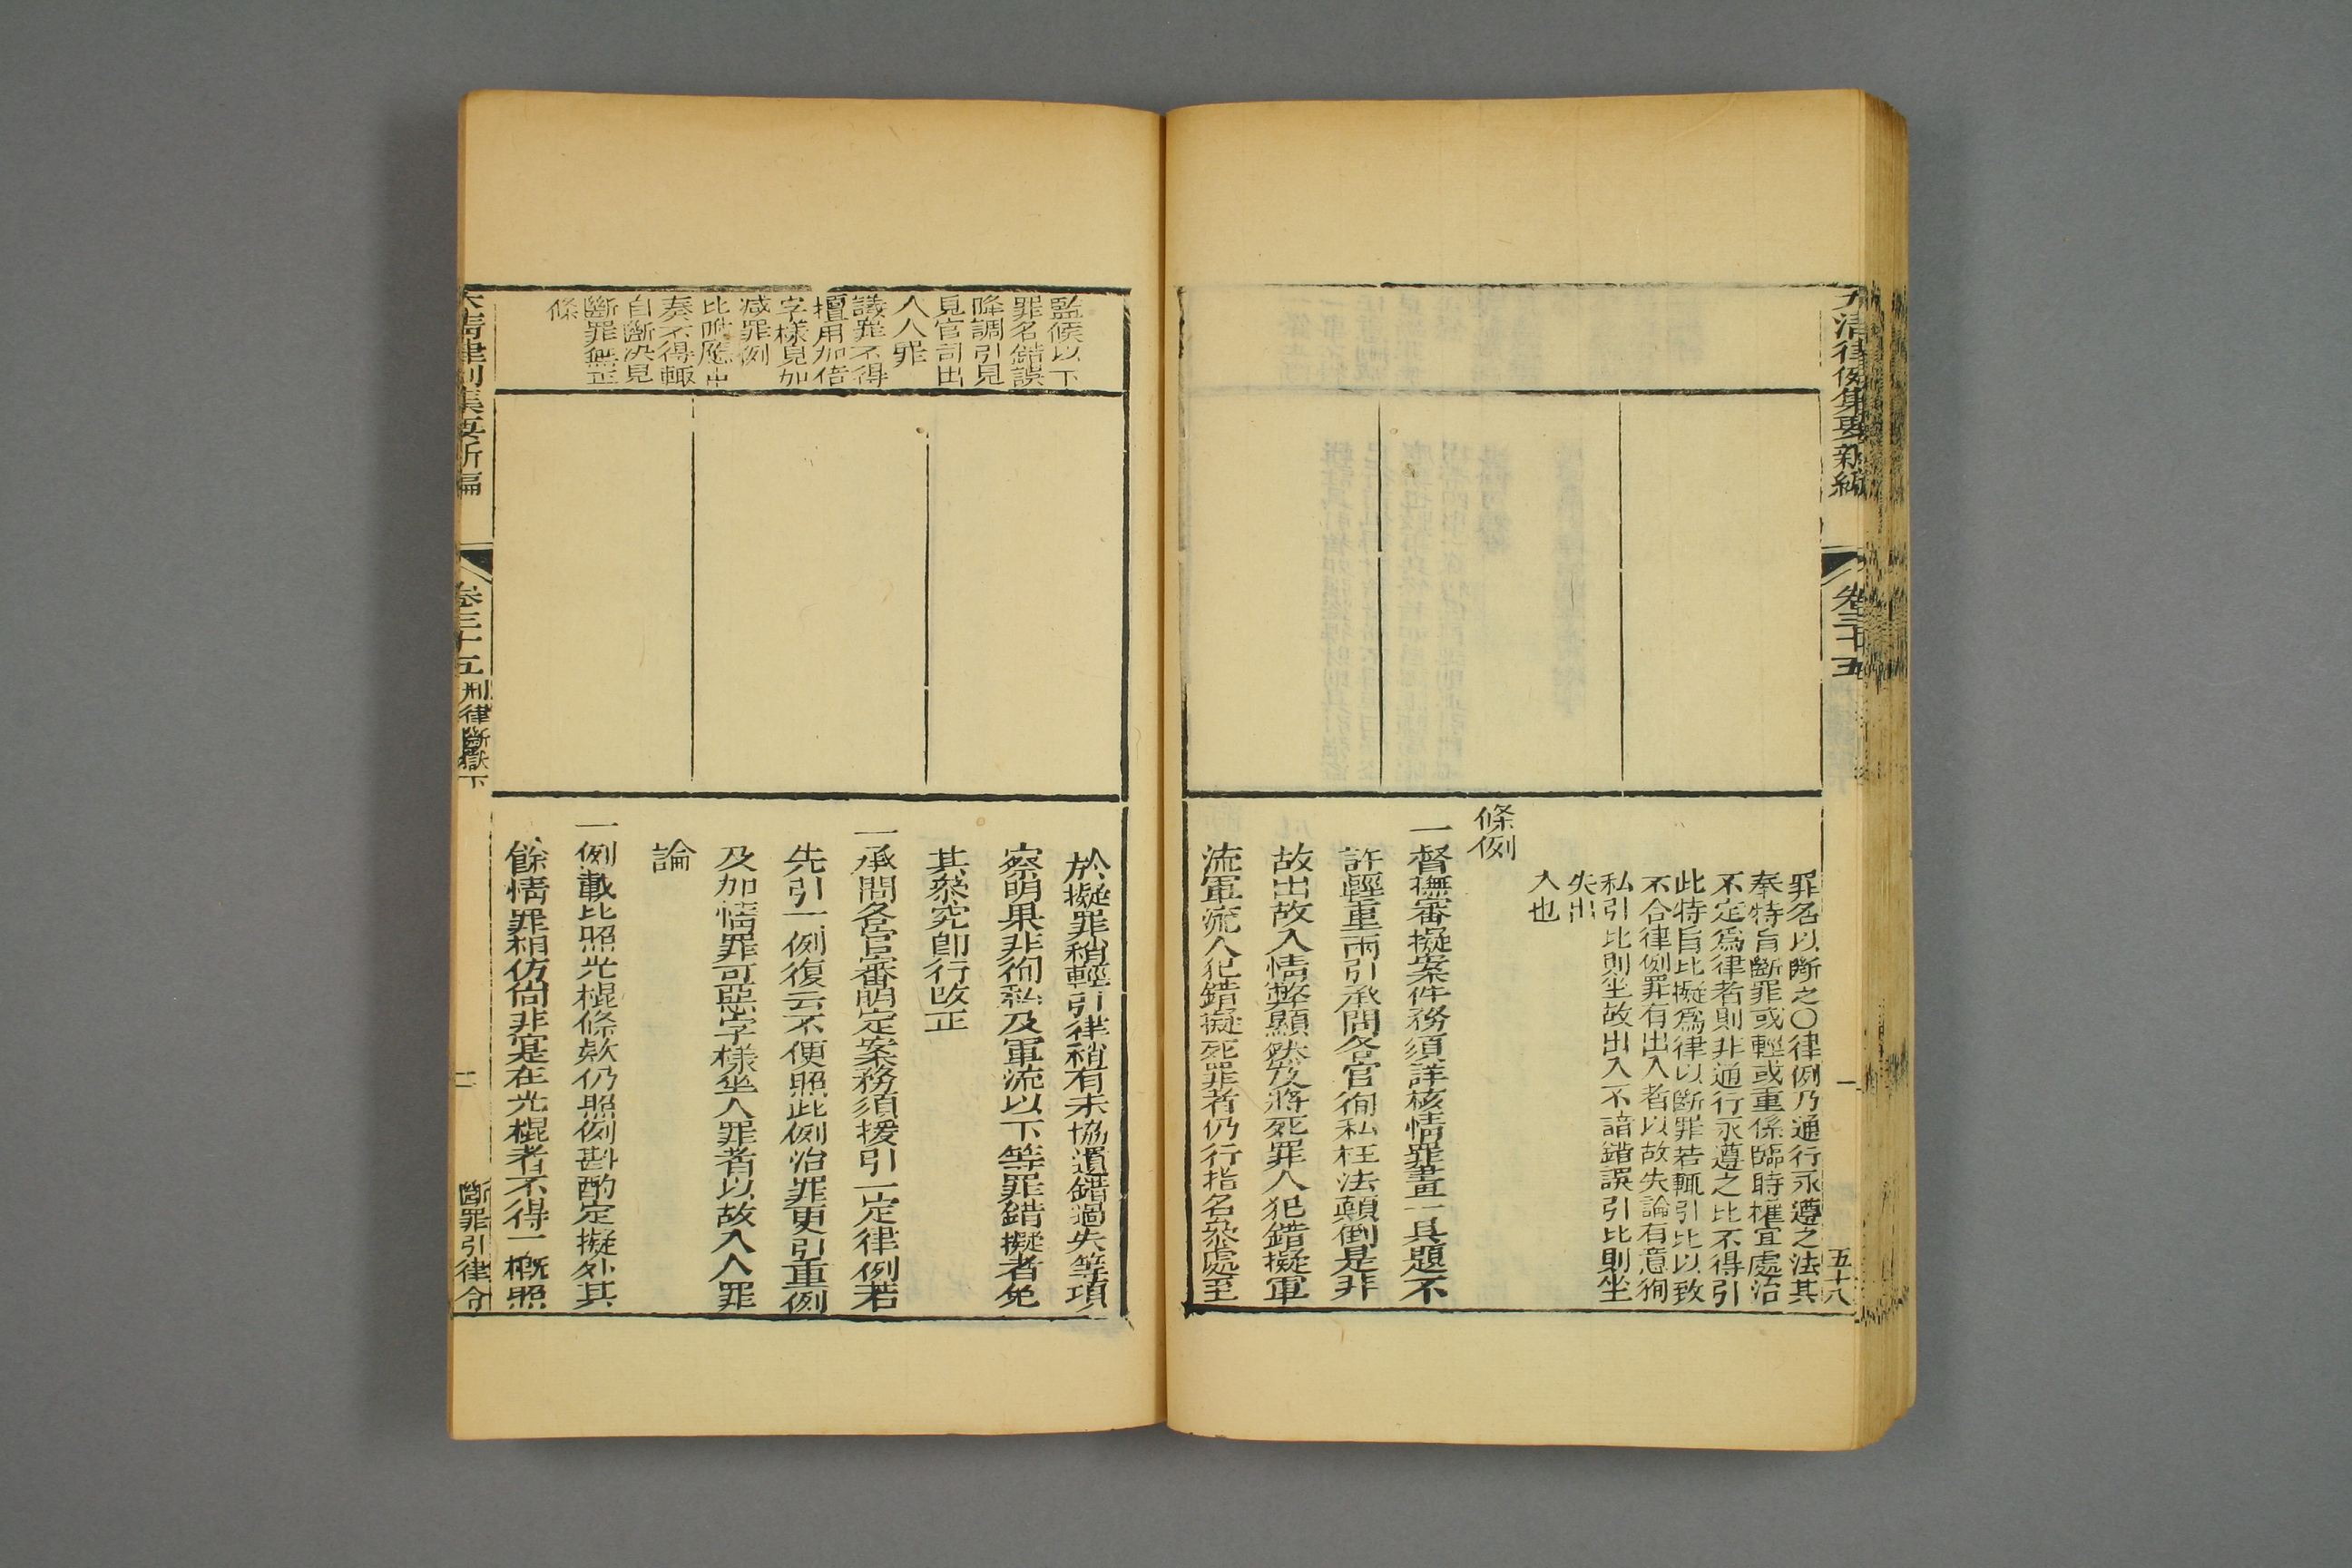 大清律例集要新編
卷三十五
一
五十八
罪名以斷之〇律例乃通行永遵之法其
奉特旨斷罪或輕或重係臨時權宜處治
不定爲律者則非通行永遵之比不得引
此特旨比擬爲律以斷罪若輒引比以致
不合律例罪有出入者以故失論有意徇
私引比則坐故出入不諳錯誤引比則坐
失出
入也
條例
一督撫審擬案件務須詳核情罪畫一具題不
許輕重兩引承問各官徇私枉法顛倒是非
故出故入情弊顯然及將死罪人犯錯擬軍
流軍流人犯錯擬死罪者仍行指名叅處至
監候以下
罪名錯誤
降調引見
見官司出
入人罪
議罪不得
擅用加倍
字樣見加
减罪例
比附應出
奏不得輒
自斷決見
斷罪無正
條
於擬罪稍輕引律稍有未協遺錯過失等項
察明果非徇私及軍流以下等罪錯擬者免
其叅究卽行改正
一承問各官審明定案務須援引一定律例若
先引一例復云不便照此例治罪更引重例
及加情罪可惡字樣坐人罪者以故入人罪
論
一例載比照光棍條欵仍照例斟酌定擬外其
餘情罪相仿尙非寔在光棍者不得一槪照
大清律例集要新編
卷三十五
刑律斷獄下
二
斷罪引律令